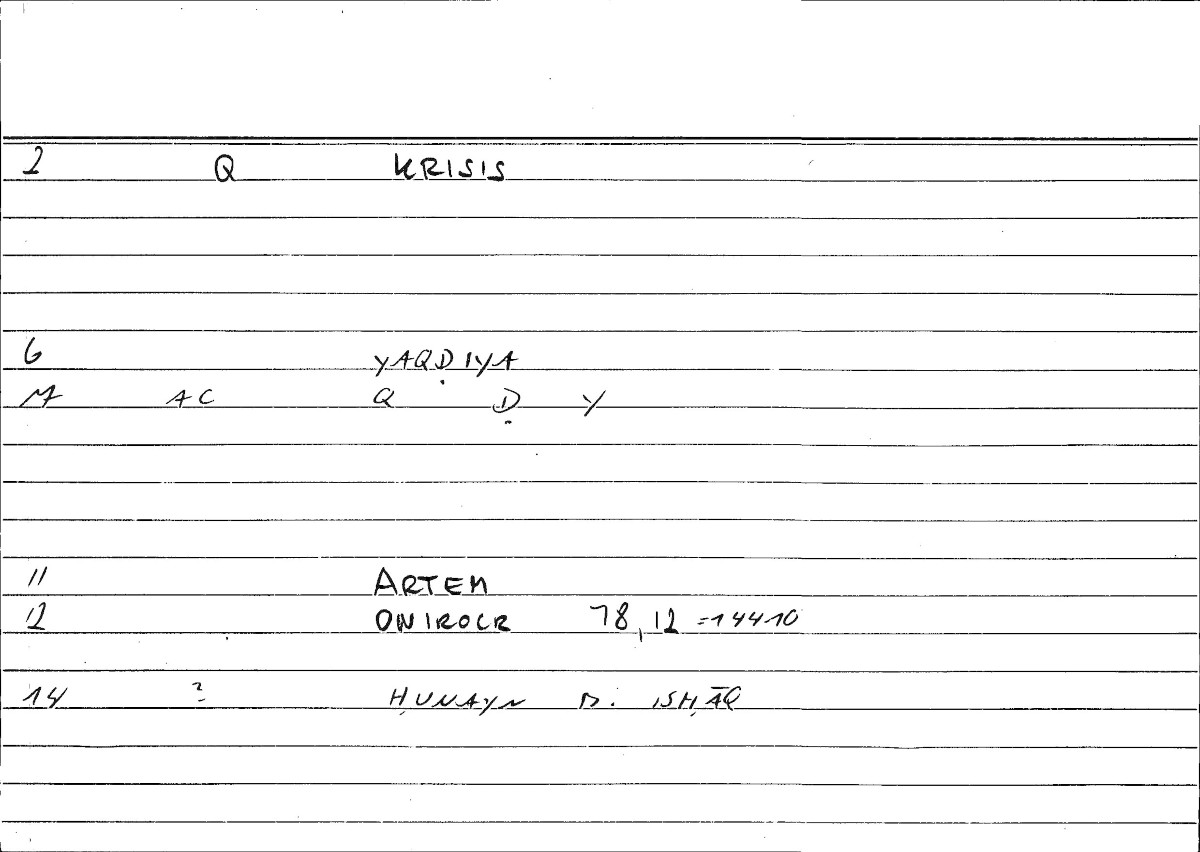 2 Q KRISIS
6 YAQḌIYA
M AC Q Ḍ Y
11 ARTEM
12 ONIROCR 78,12 =144 10
14 ? ḤUNAYN B. ISḤĀQ